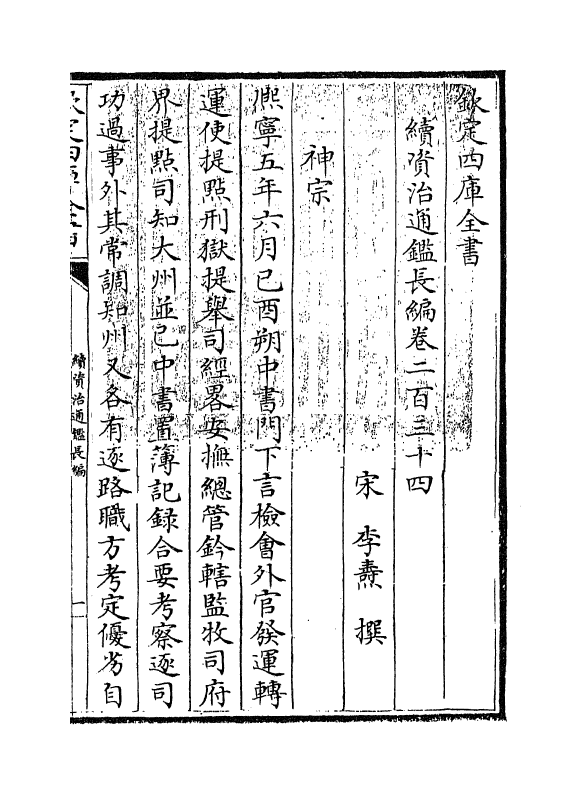 欽定四庫全書
續資治通鑑長編卷二百三十四
宋　李燾　撰
神宗
熈寧五年六月已酉朔中書門下言檢會外官發運轉
運使提點刑獄提舉司經畧安撫總管鈐轄監牧司府
界提點司知大州並已中書置簿記録合要考察逐司
功過事外其常調知州又各有逐路職方考定優劣自
欽定四庫全書
續資治通鑑長編
一